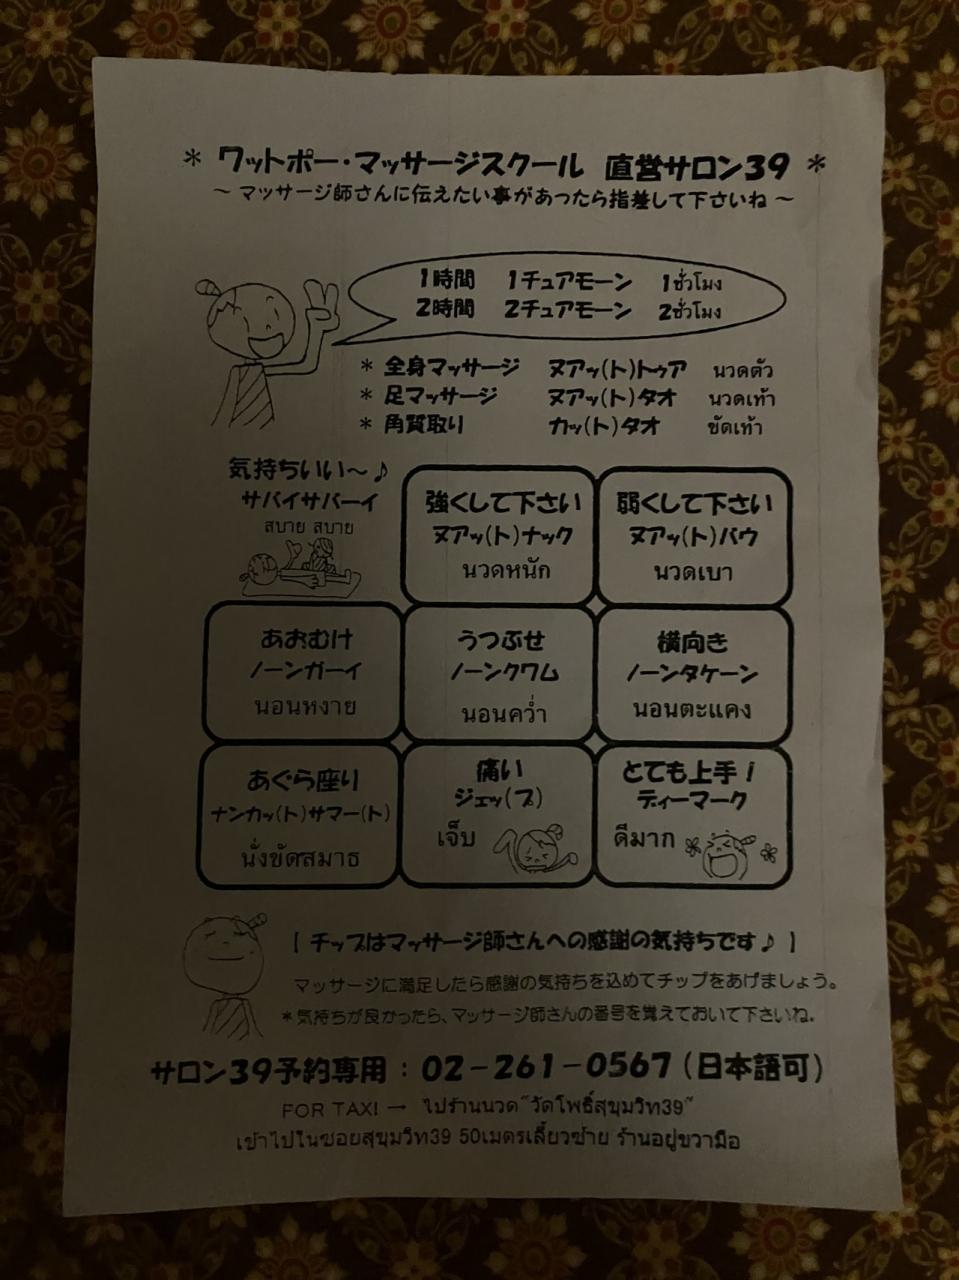 * ワットポー・マッサージスクール 直営サロン39 *
~ マッサージ師さんに伝えたい事があったら指差して下さいね ~
1時間 1チュアモーン 1ชั่วโมง
2時間 2チュアモーン 2ชั่วโมง
* 全身マッサージ ヌアッ(ト)トゥア นวดตัว
* 足マッサージ ヌアッ(ト)タオ นวดเท้า
* 角質取り カッ(ト)タオ ขัดเท้า
気持ちいい～♪
サバイサバーイ
สบาย สบาย
強くして下さい
ヌアッ(ト)ナック
นวดหนัก
弱くして下さい
ヌアッ(ト)バウ
นวดเบา
あおむけ
ノーンガーイ
นอนหงาย
うつぶせ
ノーンクワム
นอนคว่ำ
横向き
ノーンタケーン
นอนตะแคง
あぐら座り
ナンカッ(ト)サマー(ト)
นั่งขัดสมาธ
痛い
ジェッ(プ)
เจ็บ
とても上手!
ディーマーク
ดีมาก
[ チップはマッサージ師さんへの感謝の気持ちです♪ ]
マッサージに満足したら感謝の気持ちを込めてチップをあげましょう。
*気持ちが良かったら、マッサージ師さんの番号を覚えておいて下さいね。
サロン39予約専用 : 02-261-0567 (日本語可)
FOR TAXI → ไปร้านนวด "วัดโพธิ์สุขุมวิท39"
เข้าไปในซอยสุขุมวิท39 50เมตรเลี้ยวซ้าย ร้านอยู่ขวามือ